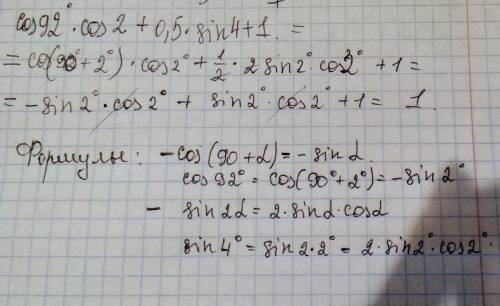 cos92° · cos2 + 0,5 · sin4 + 1. =
= cos(90° + 2°) · cos2° + 1/2 · 2 sin2° cos2° + 1 =
= -sin2° · cos2° + sin2° · cos2° + 1 = 1.
Формулы: - cos(90 + α) = -sin α.
cos92° = cos(90° + 2°) = -sin2°
- sin2α = 2 · sinα · cosα
sin4° = sin2·2° = 2 · sin2° · cos2°.